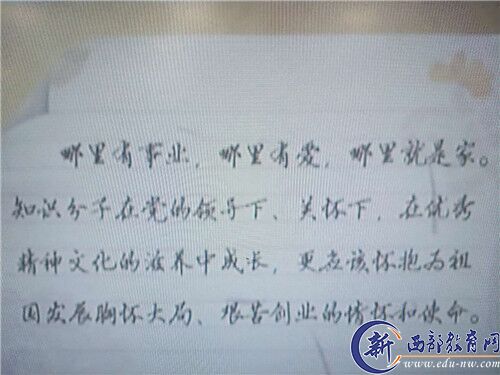 哪里有事业，哪里有爱，哪里就是家。
知识分子在党的领导下、关怀下，在优秀
精神文化的滋养中成长，更应该怀抱为祖
国发展胸怀大局、艰苦创业的情怀和使命。
新 西部教育网
www.edu-nw.com